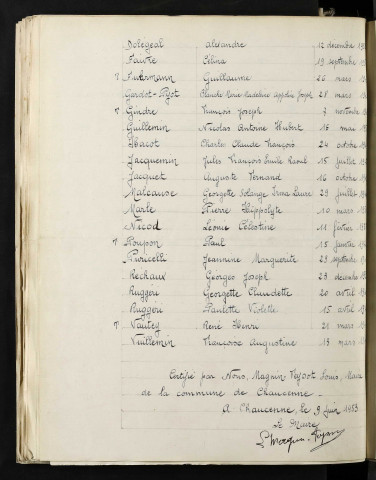 Dolegeal Alexandre 12 decembre
Faivre Célina 19 septembre
Fuhrmann Guillaume 26 mars
Gardot-Pyot Claude Marie Madeleine Joseph 28 mars
Gindre François Joseph 7 novembre
Guillemin Nicolas Antoine Hubert 15 mai
Hacot Charles Claude François 24 octobre
Jacquemin Jules François Emile Raoul 15 juillet
Jacquet Auguste Fernand 16 octobre
Malcause Georgette Solange Irma Laure 29 juillet
Marle Pierre Hippolyte 10 mars
Nicod Léonie Célestine 11 février
Poupon Paul 15 janvier
Puricelli Jeannine Marguerite 23 septembre
Rechaux Georges Joseph 23 décembre
Ruggeri Georgette Claudette 20 avril
Ruggeri Paulette Violette 15 avril
Vautey René Henri 21 mars
Vuillemin Françoise Augustine 13 mars
Certifié par Nous, Magnin-Feysot Louis, Maire
de la commune de Chaucenne -
A Chaucenne, le 9 juin 1953
Le Maire
L Magnin-Feysot